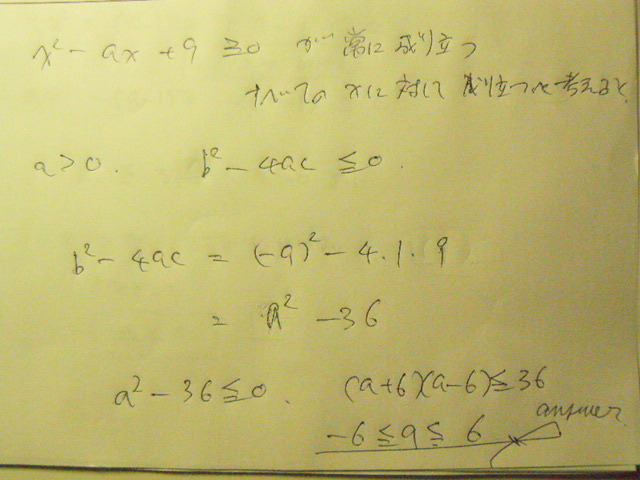 x² - ax + 9 ≧0 が 常に 成り立つ
すべての xに 対して 成り立つと考えると
a>0. b² - 4ac ≦0.
b² - 4ac = (-a)² - 4.1.9
= a² - 36
a² - 36 ≦0. (a+6)(a-6)≦36
answer
-6 ≦a≦ 6